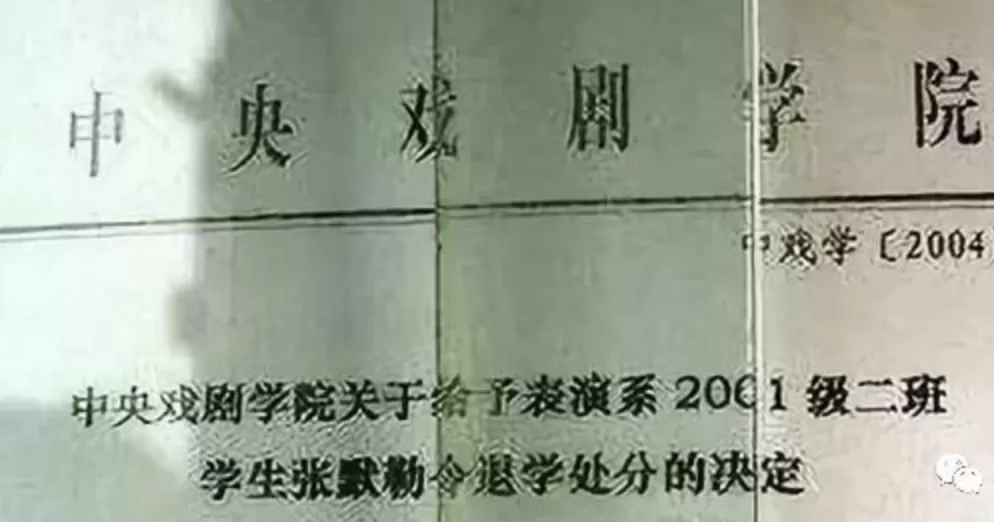 中央戏剧学院
中戏学〔2004
中央戏剧学院关于给予表演系2001级二班
学生张默勒令退学处分的决定